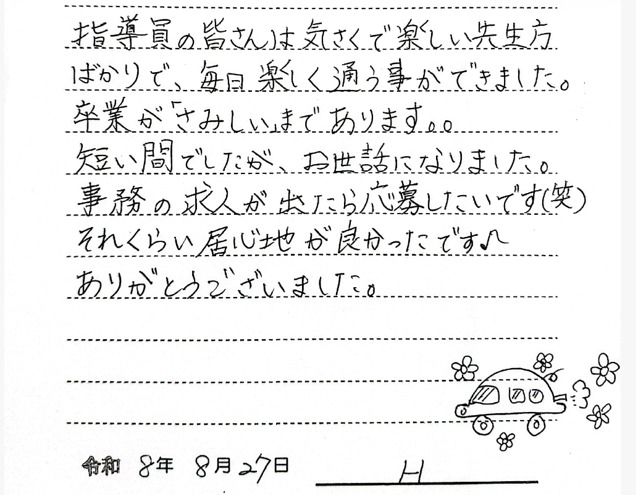 指導員の皆さんは気さくで楽しい先生方
ばかりで、毎日楽しく通う事ができました。
卒業が「さみしい」まであります。。
短い間でしたが、お世話になりました。
事務の求人が出たら応募したいです(笑)
それくらい居心地が良かったです♪
ありがとうございました。
令和 8年 8月27日 H